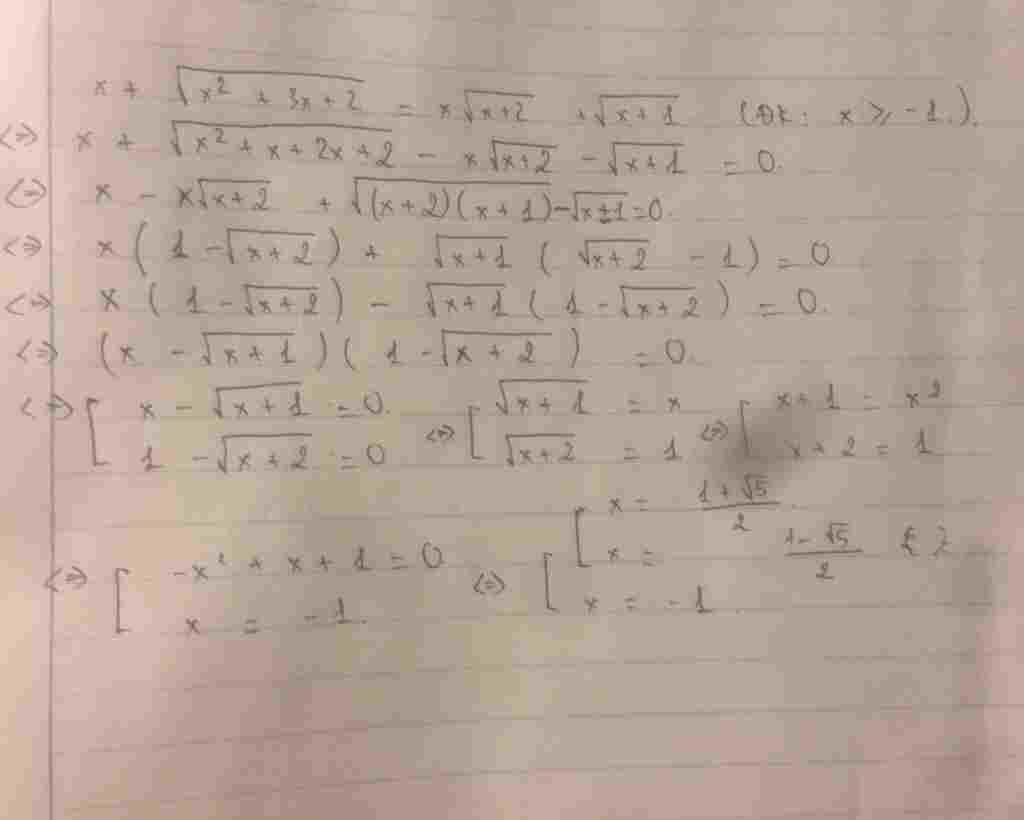 x + √(x² + 3x + 2) = x√(x+2) + √(x+1) (ĐK: x ⩾ -1.).
<=> x + √(x² + x + 2x + 2) - x√(x+2) - √(x+1) = 0.
<=> x - x√(x+2) + √((x+2)(x+1)) - √(x+1) = 0.
<=> x(1 - √(x+2)) + √(x+1)(√(x+2) - 1) = 0
<=> x(1 - √(x+2)) - √(x+1)(1 - √(x+2)) = 0.
<=> (x - √(x+1))(1 - √(x+2)) = 0.
<=> [ x - √(x+1) = 0. <=> [ √(x+1) = x <=> [ x+1 = x²
1 - √(x+2) = 0 √(x+2) = 1 x+2 = 1
<=> [ -x² + x + 1 = 0 <=> [ [ x = (1+√5)/2.
x = (1-√5)/2
x = -1. x = -1.